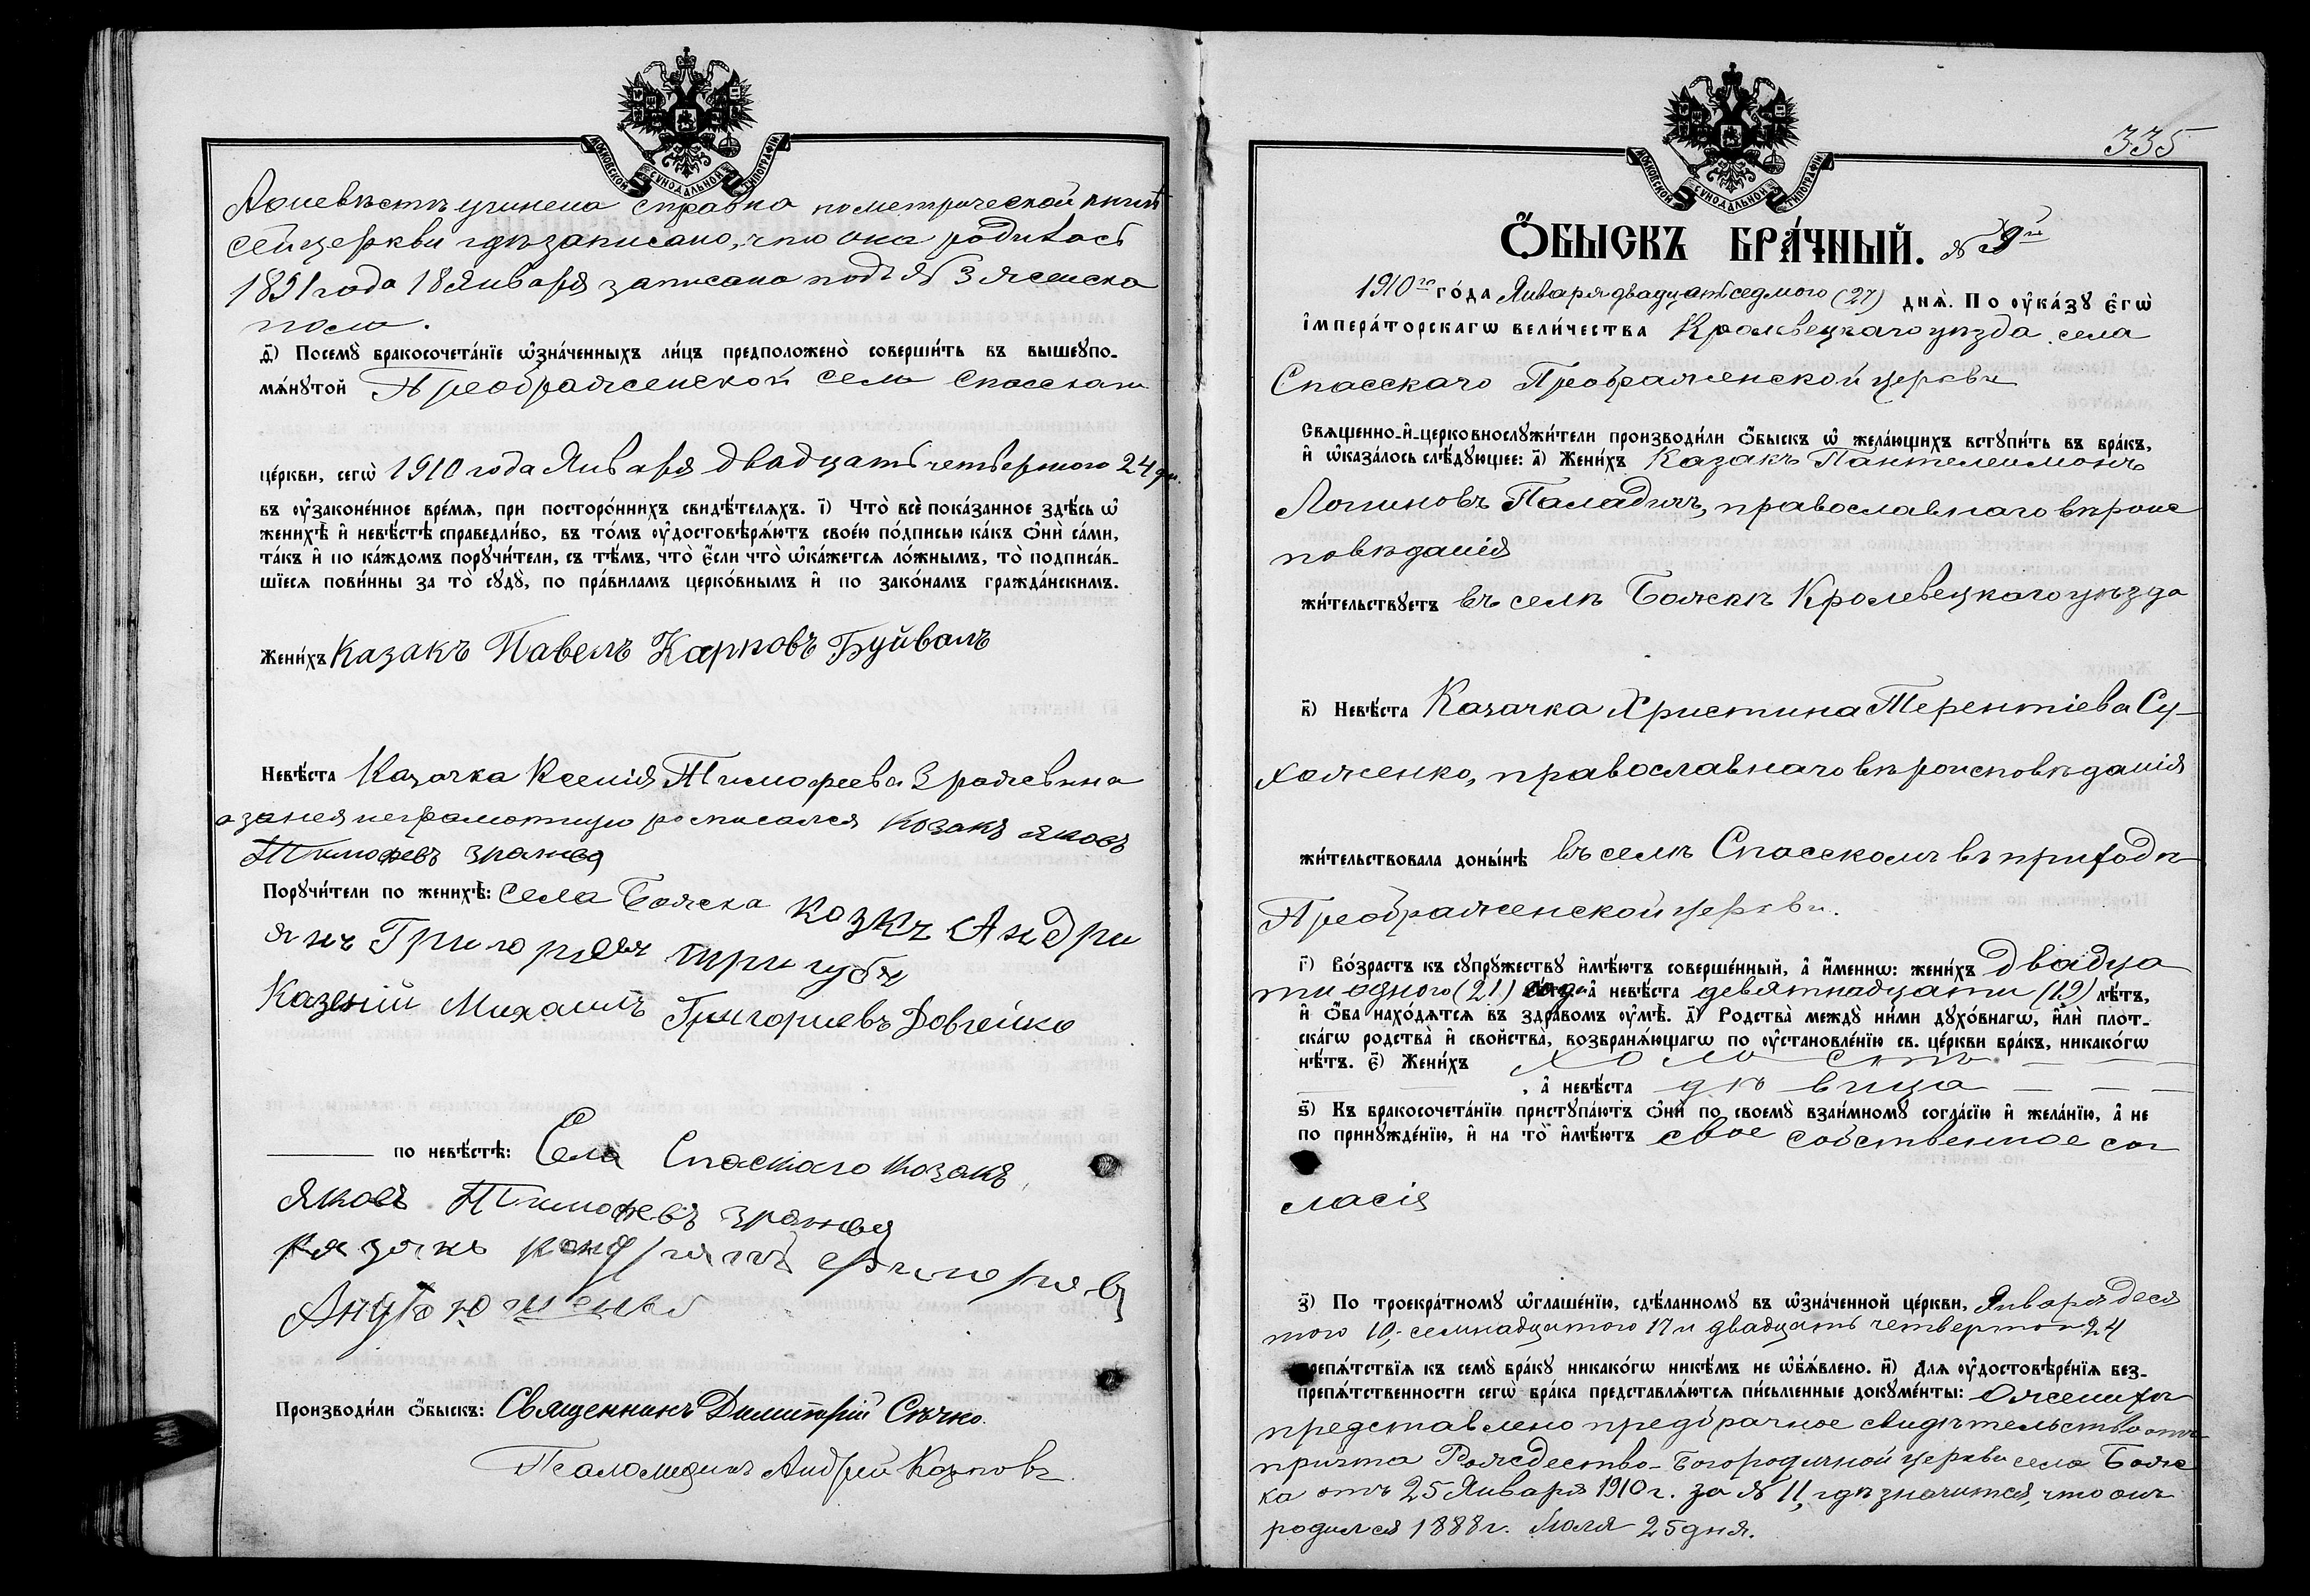 МОСКОВСКОЙ СУНОДАЛЬНОЙ ТИПОГРАФІИ
А о невѣстѣ учинена справка по метрической книгѣ
сей церкви гдѣ записано, что она родилась
1891 года 18 Января записана подъ № 3 женска
пола.
д҃) Посемꙋ̀ бракосочета́нїе ѡ҆зна́ченныхъ ли́цъ предположено̀ соверши́ть въ вышеꙋпо-
мѧ́нꙋтой Преображенской села Спасскаго
це́ркви, сегѡ̀ 1910 года Января двадцать четвертаго 24 дн.
въ ᲂу҆зако́ненное вре́мѧ, при посторо́ннихъ свидѣ́телѧхъ. і҃) Что̀ всѐ пока́занное здѣ́сь ѡ҆
женихѣ̀ и҆ невѣ́стѣ справедли́во, въ то́мъ ᲂу҆достовѣрѧ́ютъ свое́ю по́дписью ка́къ ѻ҆нѝ са́ми,
та́къ и҆ по ка́ждомъ порꙋчи́тели, съ тѣ́мъ, что̀ є҆́сли что̀ ѡ҆ка́жетсѧ ло́жнымъ, то̀ подписа́в-
шїесѧ пови́нны за то̀ сꙋдꙋ̀, по пра́виламъ церко́внымъ и҆ по зако́намъ гражда́нскимъ.
Жени́хъ Казакъ Павелъ Карповъ Буйвалъ
Невѣ́ста Казачка Ксенія Тимофеева Зражевская
а за нея неграмотную росписался Козакъ Яковъ
Тимофевъ
Порꙋчи́тели по женихѣ̀: Села Божска Козкъ Андри
янъ Григорıевъ Тригубъ
Казакъ Михаилъ Григориевъ Довгейко
по невѣ́стѣ: Села Спаского Козакъ
Яковъ Тимофевъ
Казакъ Кондратъ Григорıевъ
Андрющенко
Производи́ли ѻ҆́быскъ: Священникъ Димитрій Сѣчко.
Псаломщикъ Андрей Карповъ.
335
МОСКОВСКОЙ СУНОДАЛЬНОЙ ТИПОГРАФІИ
Ѻ҆́БЫСКЪ БРА́ЧНЫЙ. № 9й
1910го го́да Января двадцать седмого (27) днѧ̀. По ᲂу҆ка́зꙋ є҆гѡ̀
і҆мпера́торскагѡ вели́чества Кролевецкаго уѣзда села
Спасскаго Преображенской церкви
Свѧщенно-и҆-церковнослꙋжи́тели производи́ли ѻ҆́быскъ ѡ҆ жела́ющихъ встꙋпи́ть въ бра́къ,
и҆ ѡ҆каза́лось слѣ́дꙋющее: а҃) Жени́хъ Казакъ Пантелеимонъ
Логиновъ Паладичъ, православнаго вѣроис
повѣданія
жи́тельствꙋетъ въ селѣ Божкѣ Кролевецкаго уѣзда
в҃) Невѣ́ста Казачка Христина Терентіева Су-
хоженко, православнаго вѣроисповѣданія
жи́тельствовала доны́нѣ въ селѣ Спасскомъ въ приходѣ
Преображенской церкви.
г҃) Во́зрастъ къ сꙋпрꙋ́жествꙋ и҆мѣ́ютъ соверше́нный, а҆ и҆́менно: жени́хъ двадца
ти одного (21) года а҆ невѣ́ста девятнадцати (19) лѣ́тъ,
и҆ ѻ҆́ба нахо́дѧтсѧ въ здра́вомъ ᲂу҆мѣ̀. д҃) Родства̀ междꙋ̀ ни́ми дꙋхо́внагѡ, и҆лѝ плот-
ска́гѡ родства̀ и҆ сво́йства, возбранѧ́ющагѡ по ᲂу҆становле́нїю св. це́ркви бра́къ, никако́гѡ
нѣ́тъ. є҃) Жени́хъ холостъ — —
, а҆ невѣ́ста дѣвица — — —
ѕ҃) Къ бракосочета́нїю пристꙋпа́ютъ ѻ҆нѝ по своемꙋ̀ взаи́мномꙋ согла́сїю и҆ жела́нїю, а҆ не
по принꙋжде́нїю, и҆ на то̀ и҆мѣ́ютъ свое собственное сог
ласія
з҃) По троекра́тномꙋ ѡ҆глаше́нїю, сдѣ́ланномꙋ въ ѡ҆зна́ченной це́ркви, Января деся
таго 10, семнадцатого 17 и двадцать четвертого 24
препѧ́тствїѧ къ семꙋ̀ бра́кꙋ никако́гѡ никѣ́мъ не ѡ҆б̾ѧ́влено. и҃) Длѧ ᲂу҆достовѣре́нїѧ без-
препѧ́тственности сегѡ̀ бра́ка представлѧ́ютсѧ пи́сьменные докꙋме́нты: О женихѣ
представлено предбрачное свидѣтельство отъ
причта Рождество-Богородичной церкви села Божс
ка отъ 25 Января 1910 г. за № 11, гдѣ значится, что онъ
родился 1888 г. Іюля 25 дня.